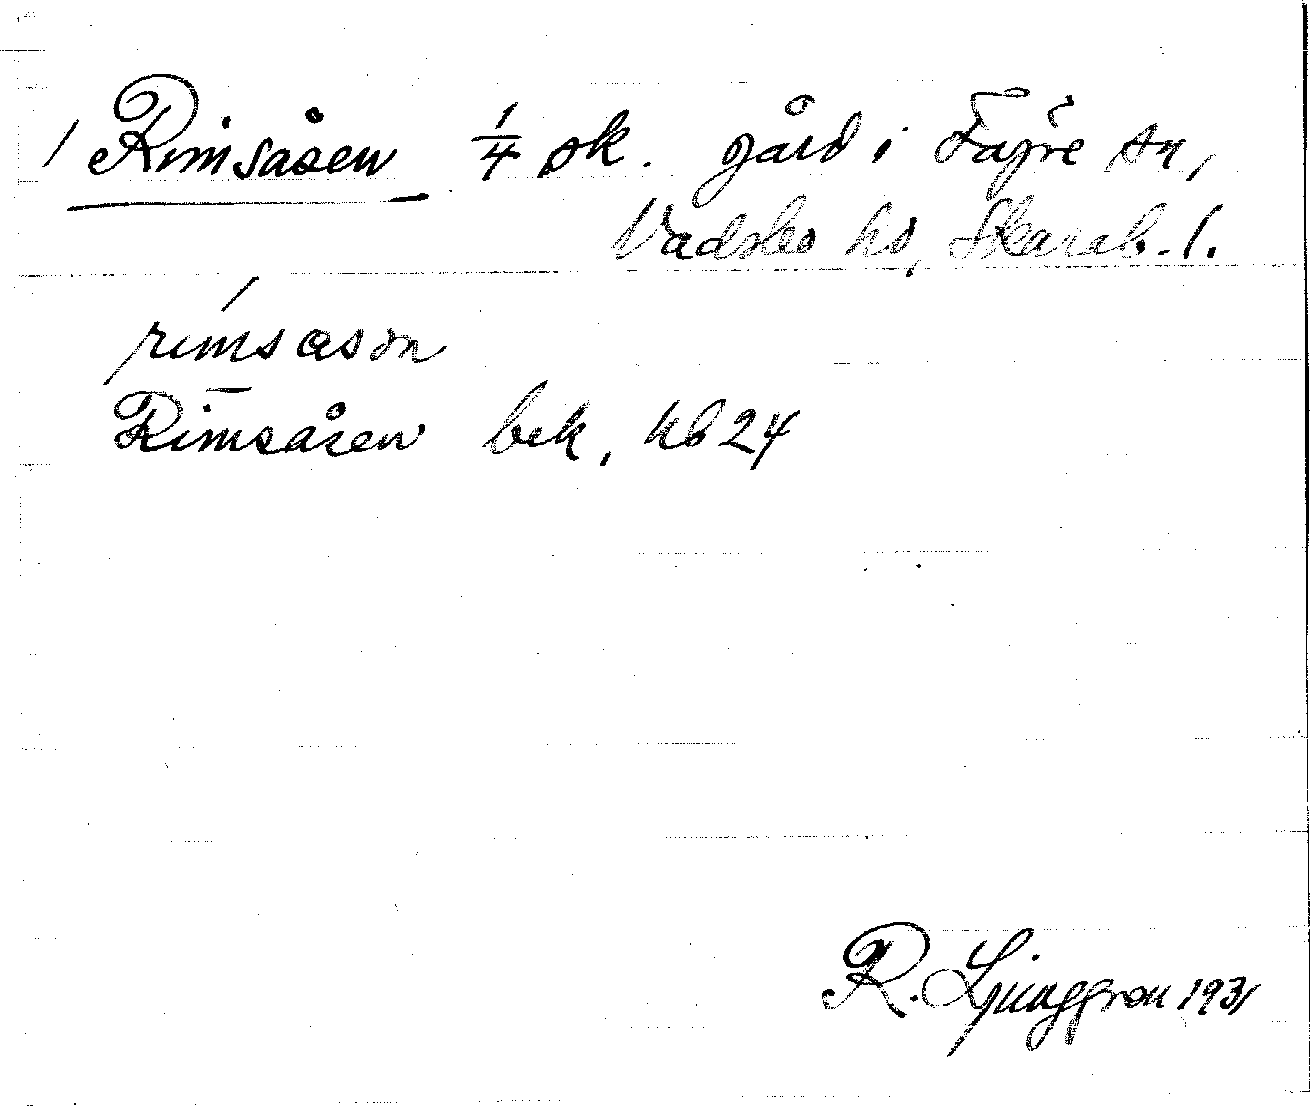 / Rimsåsen 1/4 sk. gård i Fägre sn,
Vadsbo hd, Skarab. l.
rimsåsen
Rimsåsen bek, hb 24
R. Ljunggren 1931